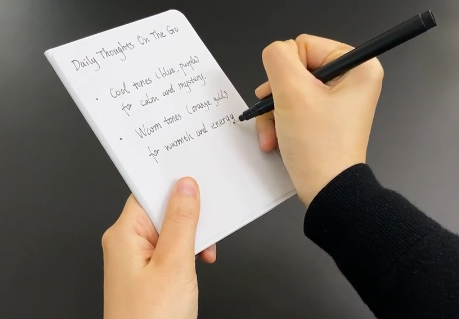 Daily Thoughts On The Go
• Cool tones (blue, purple)
for calm and mystery.
• Warm tones (orange, gold)
for warmth and energy.